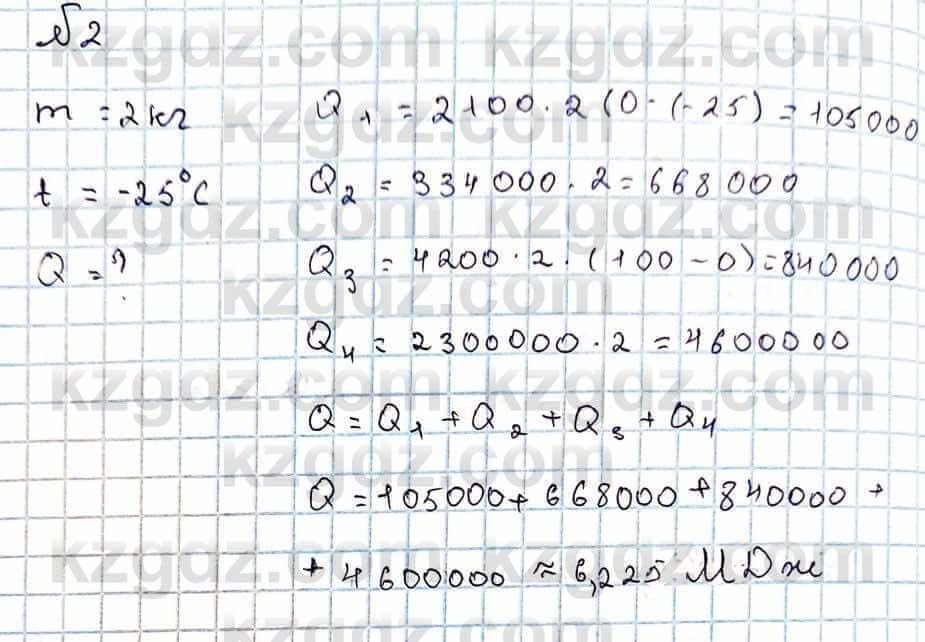 №2
m = 2 кг
Q₁ = 2100 · 2 (0 - (-25) = 105000
t = -25°C
Q₂ = 334000 · 2 = 668000
Q = ?
Q₃ = 4200 · 2 · (100 - 0) = 840000
Q₄ = 2300000 · 2 = 4600000
Q = Q₁ + Q₂ + Q₃ + Q₄
Q = 105000 + 668000 + 840000 +
+ 4600000 ≈ 6,225 МДж
kzgdz.com